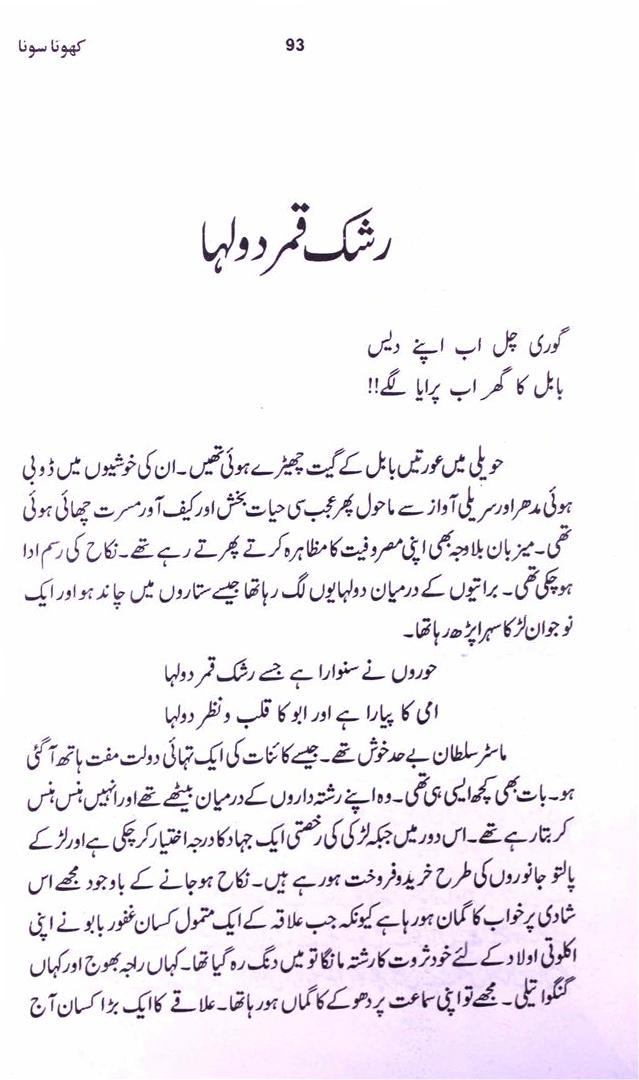 کھوٹا سونا
93
رشک قمر دولہا
گوری چل اب اپنے دیس
بابل کا گھر اب پرایا لگے!!
حویلی میں عورتیں بابل کے گیت چھیڑے ہوئی تھیں۔ ان کی خوشیوں میں ڈوبی
ہوئی مدھر اور سریلی آواز سے ماحول پھر عجب سی حیات بخش اور کیف آور مسرت چھائی ہوئی
تھی۔ میزبان بلاوجہ بھی اپنی مصروفیت کا مظاہرہ کرتے پھرتے رہے تھے۔ نکاح کی رسم ادا
ہو چکی تھی۔ براتیوں کے درمیان دولہا یوں لگ رہا تھا جیسے ستاروں میں چاند ہو اور ایک
نوجوان لڑکا سہرا پڑھ رہا تھا۔
حوروں نے سنوارا ہے جسے رشک قمر دولہا
امی کا پیارا ہے اور ابو کا قلب و نظر دولہا
ماسٹر سلطان بے حد خوش تھے۔ جیسے کائنات کی ایک تہائی دولت مفت ہاتھ آ گئی
ہو۔ بات بھی کچھ ایسی ہی تھی۔ وہ اپنے رشتہ داروں کے درمیان بیٹھے تھے اور انہیں ہنس ہنس
کر بتا رہے تھے۔ اس دور میں جبکہ لڑکی کی رخصتی ایک جہاد کا درجہ اختیار کر چکی ہے اور لڑکے
پالتو جانوروں کی طرح خرید و فروخت ہو رہے ہیں۔ نکاح ہو جانے کے باوجود مجھے اس
شادی پر خواب کا گمان ہو رہا ہے کیونکہ جب علاقہ کے ایک متمول کسان غفور بابو نے اپنی
اکلوتی اولاد کے لئے خود ثروت کا رشتہ مانگا تو میں دنگ رہ گیا تھا۔ کہاں راجہ بھوج اور کہاں
گنگوا تیلی۔ مجھے تو اپنی سماعت پر دھوکے کا گماں ہو رہا تھا۔ علاقے کا ایک بڑا کسان آج